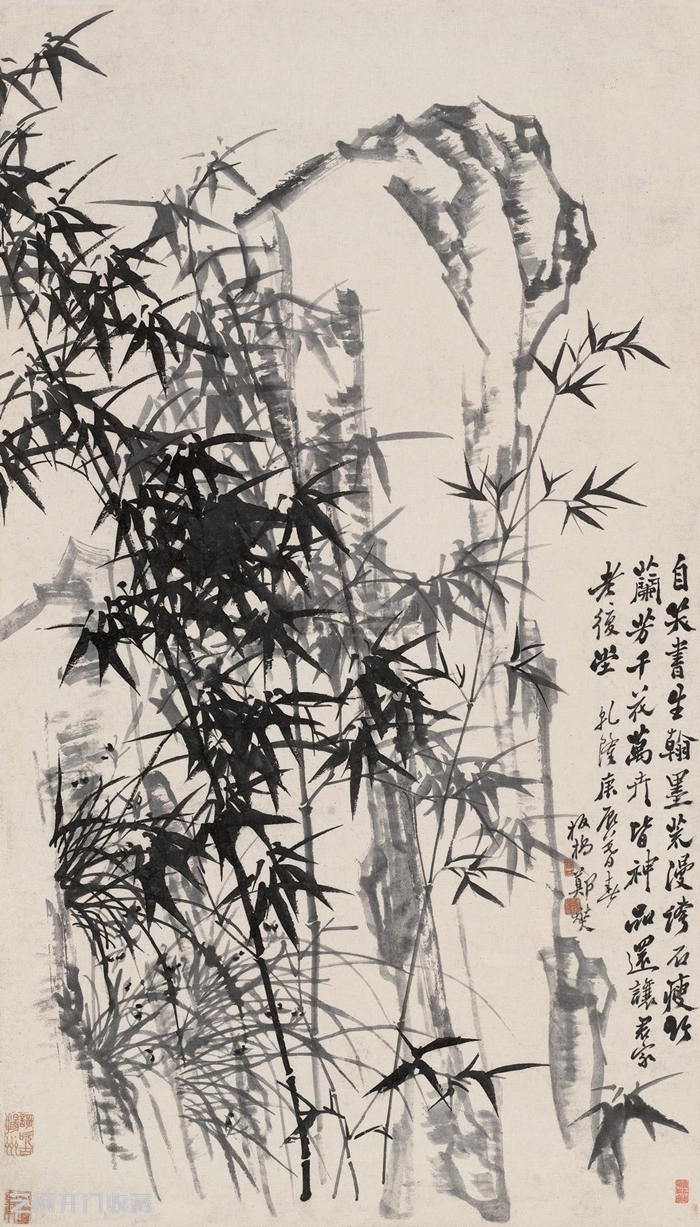 自笑書生翰墨荒漫誇石瘦竹
蘭芳千花萬卉皆神品還讓君家
老復堂 乾隆庚辰春
板橋鄭燮
麻开门收藏